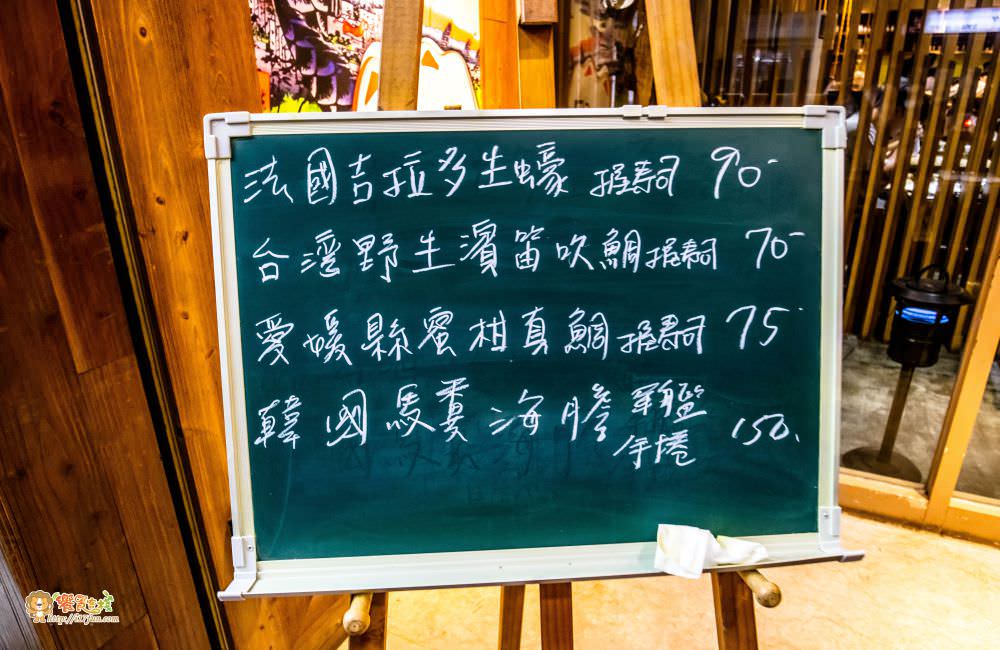 法國吉拉多生蠔 握壽司 90-
台灣野生濱笛吹鯛握壽司 70-
愛媛縣蜜柑真鯛握壽司 75-
韓國馬糞海膽 軍艦 手捲 150.
http://697fun.com